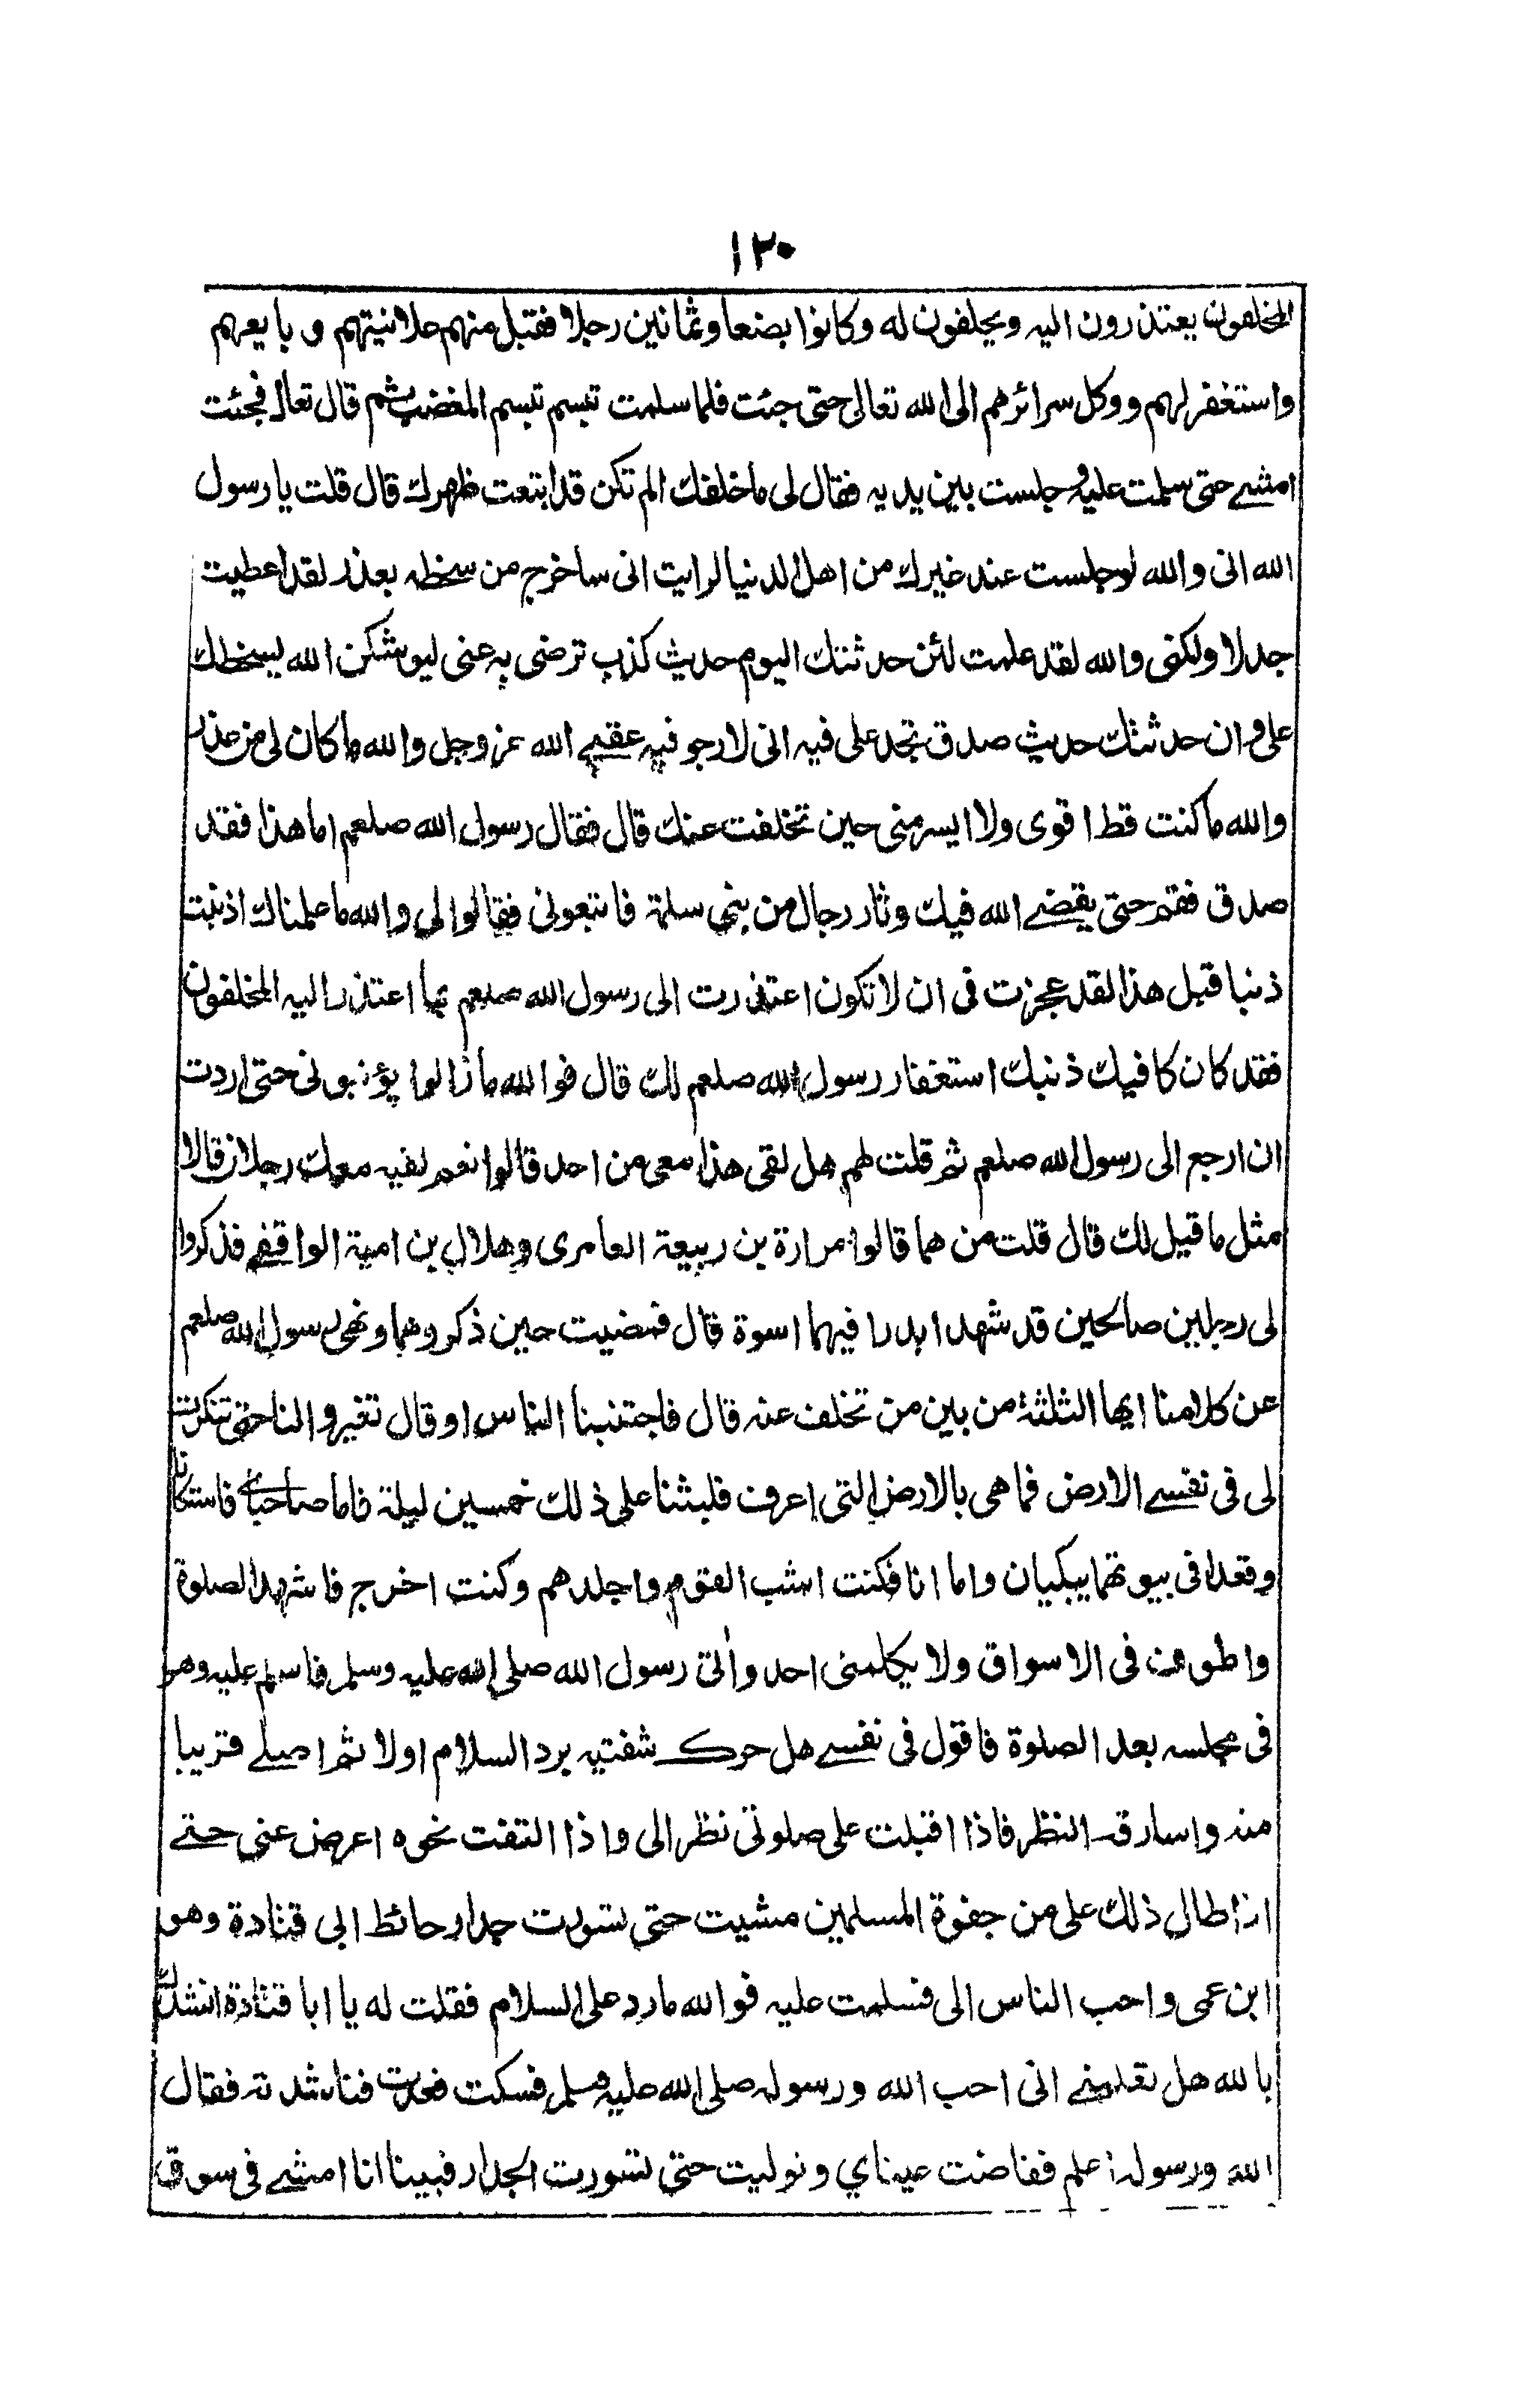 ١٢٠
المخلفون يعتذرون اليه ويحلفون له وكانوا بضعا وثمانين رجلا فقبل منهم علانيتهم و بايعهم
واستغفر لهم ووكل سرائرهم الى الله تعالى حتى جئت فلما سلمت تبسم تبسم المغضب ثم قال تعال فجئت
امشے حتى سلمت عليه وجلست بين يديه فقال لى ما خلفك الم تكن قد ابتعت ظهرك قال قلت يا رسول
الله انى والله لو جلست عند غيرك من اهل الدنيا لرايت انى ساخرج من سخطه بعذر لقد اعطيت
جدلا ولكنى والله لقد علمت لئن حدثتك اليوم حديث كذب ترضى به عنى ليوشكن الله يسخطك
على وان حدثتك حديث صدق تجد على فيه انى لارجو فيه عقبے الله عز وجل والله ما كان لى من عذر
والله ما كنت قط اقوى ولا ايسر منى حين تخلفت عنك قال فقال رسول الله صلعم اما هذا فقد
صدق فقم حتى يقضے الله فيك وثار رجال من بنى سلمة فاتبعونى فقالوا لى والله ما علمناك اذنبت
ذنبا قبل هذا لقد عجزت فى ان لا تكون اعتذرت الى رسول الله صلعم بما اعتذر اليه المخلفون
فقد كان كافيك ذنبك استغفار رسول الله صلعم لك قال فوالله ما زالوا يؤنبونى حتى اردت
ان ارجع الى رسول الله صلعم ثم قلت لهم هل لقى هذا معى من احد قالوا نعم لقيه معك رجلان قالا
مثل ما قيل لك قال قلت من هما قالوا مرارة بن ربيعة العامرى وهلال بن امية الواقفے فذكروا
لى رجلين صالحين قد شهدا بدرا فيهما اسوة قال فمضيت حين ذكروهما ونهى رسول الله صلعم
عن كلامنا ايها الثلثة من بين من تخلف عنه قال فاجتنبنا الناس او قال تغيروا لنا حتى تنكرت
لى فى نفسے الارض فما هى بالارض التى اعرف فلبثنا على ذلك خمسين ليلة فاما صاحباى فاستكانا
وقعدا فى بيوتهما يبكيان واما انا فكنت اشب القوم واجلدهم وكنت اخرج فاشهد الصلوة
واطوف فى الاسواق ولا يكلمنى احد واتى رسول الله صلى الله عليه وسلم فاسلم عليه وهو
فى مجلسه بعد الصلوة فاقول فى نفسے هل حرك شفتيه برد السلام اولا ثم اصلے قريبا
منه واسارقه النظر فاذا اقبلت على صلوتى نظر الى واذا التفت نحوه اعرض عنى حتے
اذا طال ذلك على من جفوة المسلمين مشيت حتى تسورت جدار حائط ابى قتادة وهو
ابن عمى واحب الناس الى فسلمت عليه فوالله ما رد على السلام فقلت له يا ابا قتادة انشدك
بالله هل تعلمنے انى احب الله ورسوله صلى الله عليه وسلم فسكت فعدت فناشدته فقال
الله ورسوله اعلم ففاضت عيناي وتوليت حتى تسورت الجدار فبينا انا امشے فى سوق